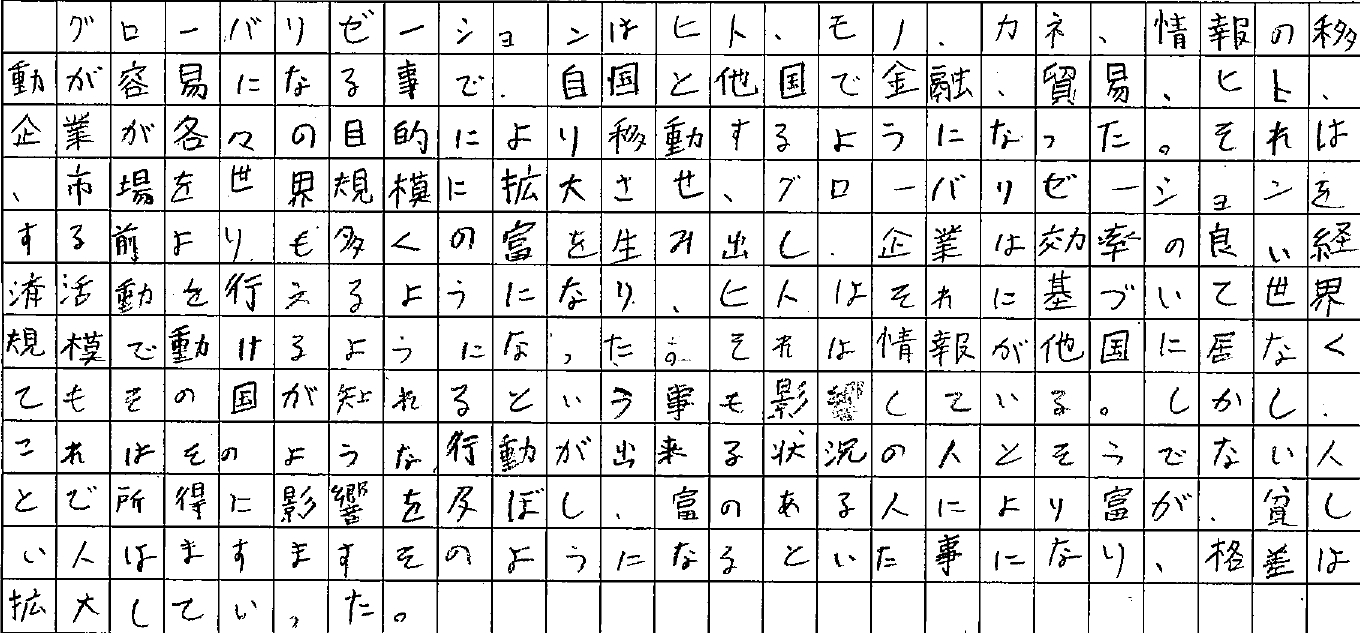 グローバリゼーションはヒト、モノ、カネ、情報の移
動が容易になる事で、自国と他国で金融、貿易、ヒト、
企業が各々の目的により移動するようになった。それは
、市場を世界規模に拡大させ、グローバリゼーションを
する前よりも多くの富を生み出し、企業は効率の良い経
済活動を行えるようになり、ヒ人はそれに基づいて世界
規模で動けるようになった。それは情報が他国に居なく
てもその国が知れるという事も影響している。しかし、
これはそのような行動が出来る状況の人とそうでない人
とで所得に影響を及ぼし、富のある人により富が、貧し
い人はますますそのようになるといた事になり、格差は
拡大していった。